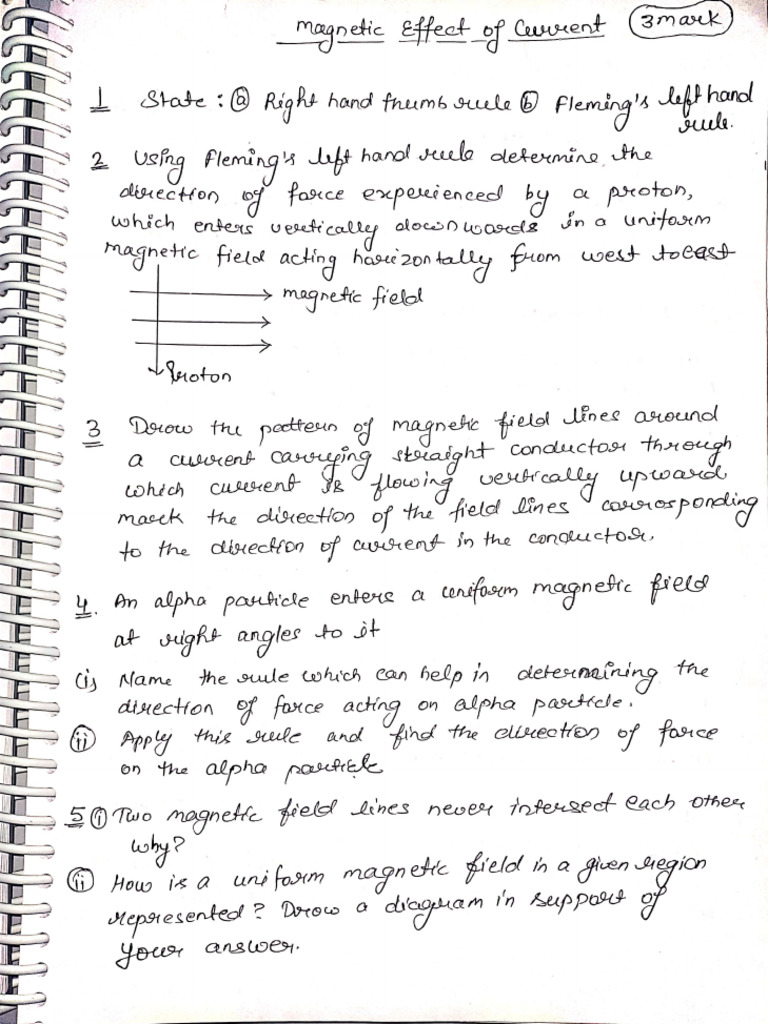 Magnetic Effect of Current 3 mark
1 State : ⓐ Right hand thumb rule ⓑ Fleming's left hand
rule.
2 Using Fleming's left hand rule determine the
direction of force experienced by a proton,
which enters vertically downwards in a uniform
magnetic field acting horizontally from west to east
magnetic field
Proton
3 Draw the pattern of magnetic field lines around
a current carrying straight conductor through
which current is flowing vertically upward
mark the direction of the field lines corrosponding
to the direction of current in the conductor.
4. An alpha particle enters a uniform magnetic field
at right angles to it
(i) Name the rule which can help in determining the
direction of force acting on alpha particle.
ⓘⓘ Apply this rule and find the direction of force
on the alpha particle
5 ⓘ Two magnetic field lines never intersect each other
why?
ⓘⓘ How is a uniform magnetic field in a given region
represented? Draw a diagram in support of
your answer.